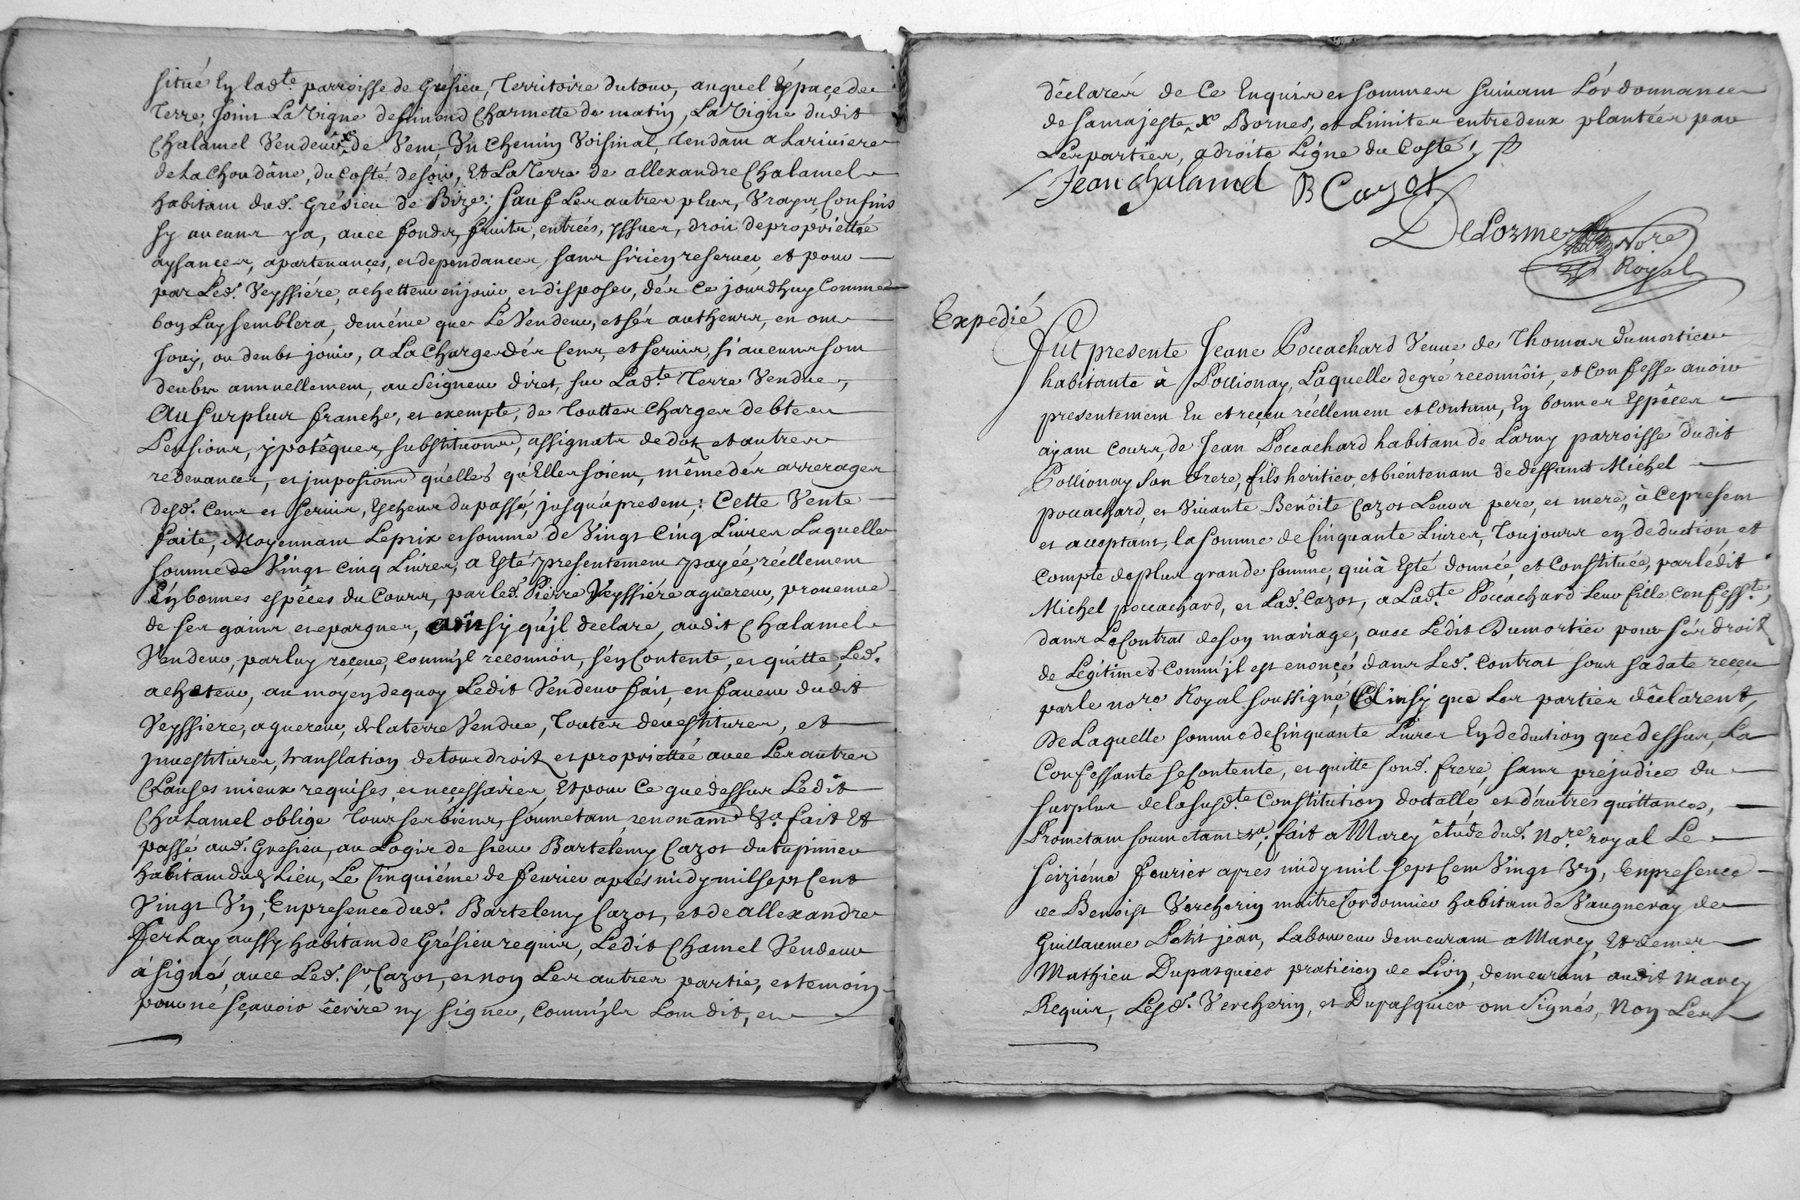 situé en lad.te parroisse de Grésieu, Territoire dutour, auquel Espace de
Terre, Joint La Vigne de Simond Charmette de matin, La Vigne dudit
Chalamel Vendeur, de Vent Un Chemin Voisinal, tendant a Lariviére
de La Choudâne, du Costé de soir, Et La Terre de allexandre Chalamel
habitant dud. Grésieu de Bize; Sauf Les autres plus, Vrays Confins
sy aucuns ya, avec fonds, fruits, entrées, yssues, droit de propriettée
aysances, apartenances, et dependances, sans sirien reserver, et pour
par Led. Veyssiére, achetteur enjouir et disposer, dés ce jourdhuy Comme
bon Luy semblera, deméme que Le Vendeur, et ses autheurs, en ont
Jouy, ou deubt jouir, a La Charge des Cens, et servis, si aucuns sont
deubts annuellement, au Seigneur diret, sur Lad.te Terre Vendue,
Au surplus franche, et exempte, de Touttes Charges debtes
Pensions, ypotêques, substitutions, assignats de dot, et autres
redevances, et impositions quelles qu'Elles soient, même des arrerages
desd. Cens et servis, Escheus dupassé, jusquápresent; Cette Vente
faite, Moyennant Leprix et somme de Vingt Cinq Livres Laquelle
somme de Vingt Cinq Livres, a Esté presentement payée, réellement
En bonnes espéces du Cours, par led. Pierre Veyssiére aquereur, provenue
de ses gains et epargnes, ainsy qu'jl declare, audit Chalamel
Vendeur, par luy reçeue, comm'jl reconnoit, s'en Contente, et quitte Led.
acheteur, au moyen dequoy Ledit Vendeur fait, en faveur dudit
Veyssiere, aquereur, de laterre Vendue, Toutes devestitures, et
jnvestitures, translation detout droit et propriettée avec Les autres
Clauses mieux requises, et necessaires, Et pour Ce que dessus Ledit
Chalamel oblige Tous ses biens, soumetant, renonant &a. fait Et
passé aud. Gresieu, au Logis de sieur Bartelemy Cazot dutupinier
habitant dud. Lieu, Le Cinquiéme de fevrier aprés midy mil sept Cent
Vingt Un, En presence dud. Bartelemy Cazot, et de allexandre
Ferlay aussy habitant de Grésieu requis, Ledit Chamel Vendeur
á signé, avec Led. Sr. Cazot, et non Les autres partie, et temoin
pour ne sçavoir écrire ny signer, comm'jls L'ont dit, et
déclarés de Ce Enquis et sommés suivant L'ordonnance
de sa majeste, &a Bornes, et Limites entredeux plantées par
Les parties, a droite Ligne du Costé;
Jean chalamel B Cazot
Delorme Nore
Royal
Expedié
Fut presente Jeane Poccachard Veuve de Thomas Dumortier
habitante à Pollionay, Laquelle degré reconnoit, et Confesse avoir
presentement Eu et reçeu réellement et Contant, En bonnes Espéces
ayant Cours, de Jean Poccachard habitant de Larny parroisse dudit
Pollionay son frere, fils heritier, et biéntenant de deffunt Michel
poccachard, et Vivante Benôite Cazot Leurs pere, et mere, à Cepresent
et acceptant, la somme de Cinquante Livres, Toujours en deduction, et
Compte de plus grande somme, qui à Esté donnée et Constituée, par lédit
Michel poccachard, et Lad. Cazot, a Lad.te Poccachard Leur fille Confess.te,
dans Le Contrat deson mairage, avec Ledit Dumortier pour ses droit
de Légitimes Comm'jl est enonçé dans Led. Contrat sous sadate reçeu
par le nore. Royal soussigné, Ainsy que Les parties déclarent,
De Laquelle somme de Cinquante Livres En deduction que dessus, La
Confessante se Contente, et quitte sond. frere, sans préjudice du
surplus de lasusd.te Constitution doctalle et d'autres quittances,
Prometant soumetant &a; fait a Marcy étude dud. Nore. royal Le
Seiziéme fevrier aprés midy mil sept Cent Vingt Un, En presence
de Benoist Vercherin maitre Cordonnier habitant de Vaugneray de
Guillaume Petit jean, Laboureur demeurant a Marcy, Et de mer
Mathieu Dupasquier praticien de Lion, demeurant audit Marcy
Requis, Lesd. Vercherin, et Dupasquier ont Signés, Non Les